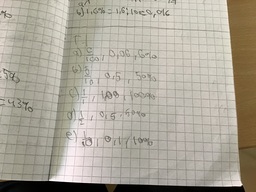 b) 1,6% = 1,6 : 100 = 0,016
%
a) 6/100, 0,06, 6%
b) 5/10, 0,5, 50%
= 43%
c) 1/1, 100, 100%
d) 1/2, 0,5, 50%
e) 1/10, 0,1, 10%